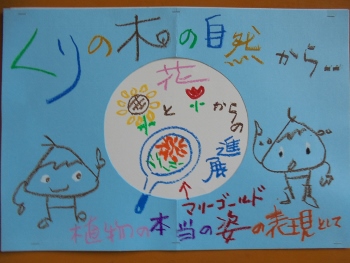 くりの木の自然から‥
花
と
からの
進展
マリーゴールド
植物の本当の姿の表現として